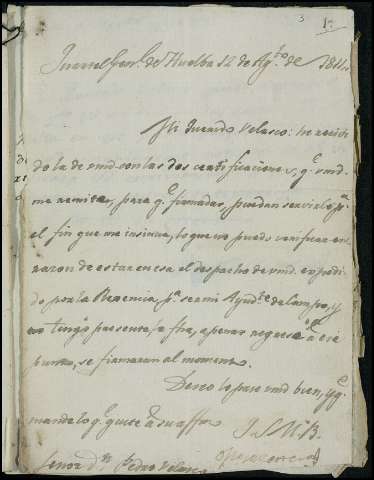 3 1
Quartel Gen.l de Huelba 12 de Ag.to de 1811
Mi Querido Velasco: he recivi
do la de vmd. con las dos certificaciones, q.e vmd.
me remite, para q.e firmadas, puedan servirle p.a
el fin que me insinua, lo que no puedo verificar en
razon de estar en esa el despacho de vmd. expedi
do por la Regencia, p.a ser mi Ayud.te de Campo, y
no tengo presente la fha, apenas regrese a ese
punto, se firmaran al momento.
Deseo lo pase vmd. bien, y q.e
mande lo q.e guste a su aff.o
Q S M B.
Señor D.n Pedro Velasco